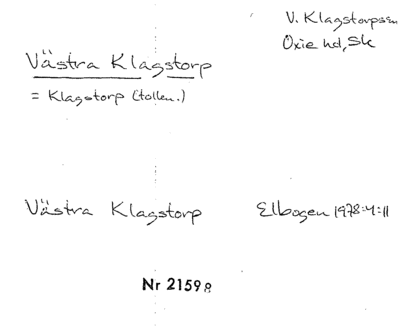 V. Klagstorpssn
Oxie hd, Sk
Västra Klagstorp
= Klagstorp (tollen.)
Västra Klagstorp
Elbogen 1978:4:11
Nr 21598